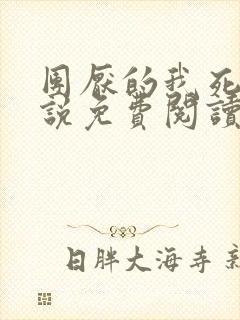 團厭的我死
說免費閱讀
日胖大海寺